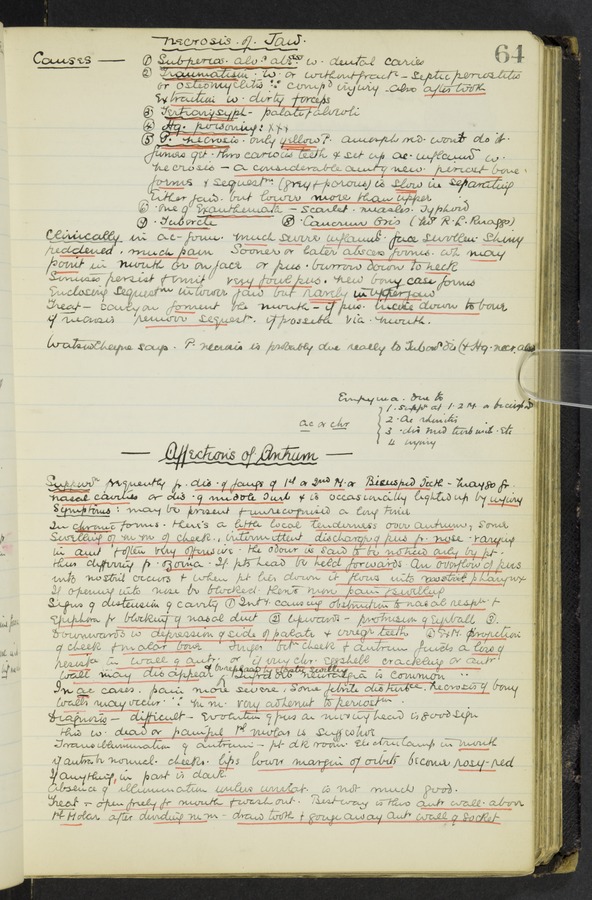 64
Necrosis of Jaw.
Causes — ① Subperios. alv. absss w. dental caries
② Traumatism. w. or without fract - Septic periostitis
or osteomyelitis ∵ compd injury also after tooth
Extraction w. dirty forceps
③ Tertiary syph - palate & alveoli
④ Hg. poisoning: xxx
⑤ P. necrosis. only yellow P. amorph red wont do it.
fumes get thro carious teeth & set up ac. inflamn w.
necrosis - a considerable amt of new periost bone.
forms & sequestm (grey & porous) is slow in separating
Either jaw. but lower more than upper
⑥ one of Exanthemata - Scarlet. measles. Typhoid
⑦ Tubercle ⑧ Cancrum Oris
Clinically in ac- form. much severe inflamn. face swollen shiny
reddened. much pain Sooner or later abscess forms. wh may
point in mouth or on face or pus. burrow down to neck
Sinuses persist & emit very foul pus. new bony case forms
Enclosing Sequestm in lower jaw but rarely in upper jaw
Treat - foment the mouth - if pus. incise down to bone
if necrosis remove sequestm. if possible via mouth.
Watson Cheyne says. P. necrosis is probably due really to Tubers Dis (& Hg. necr. also
Empyema. Due to
1. Supp. at 1. 2 M. or bicuspid
ac or chr 2. Ac rhinitis
3. dis mid turbinate. Etc
4. injury
— Affections of Antrum —
Suppurn frequently fr. dis. of fangs of 1st or 2nd M. or Bicuspid Teeth - may go fr
nasal cavities or dis. of middle Turb & is occasionally lighted up by injury
Symptoms: may be present & unrecognised a long time
In chronic forms. there's a little local tenderness over antrum, some
swelling of m.m. of cheek, intermittent discharge of pus fr. nose. varying
in amt & often very offensive. the odour is said to be noticed only by pt.
thus differing fr. ozoena. If pts head be held forwards an overflow of pus
into nostril occurs & when pt lies down it flows into nasopharynx
If opening into nose be blocked. there's more pain & swelling
Signs of distension of cavity ① Int. causing obstruction to nasal respn. &
Epiphora fr blocking of nasal duct ② upwards - protrusion of Eyeball ③.
Downwards w depression of side of palate & irreg. teeth ④ Ext. projection
of cheek & malar bone. finger bet cheek & antrum finds a loss of
in wall of ant. or if very chr. Eggshell crackling or antr
wall may disappear & be replaced by elastic swelling Infraorb neuralgia is common
In ac cases. pain more severe. Some febrile disturbce. Necrosis of bony
walls may occur ∵ m.m. very adherent to periosteum.
Diagnosis - difficult - Evolution of pus on moving head is good sign
this w. dead or painful 1st molar is suggestive
Transillumination of antrum - pt dk room. Electric lamp in mouth
if antrum normal. cheeks. lips lower margin of orbits become rosy-red
if anything in part is dark
Absence of illumination unless unilat. is not much good.
Treat - open freely fr mouth & wash out. Best way is thro ant wall above
1st Molar after dividing m.m - draw tooth & gouge away ant wall of socket